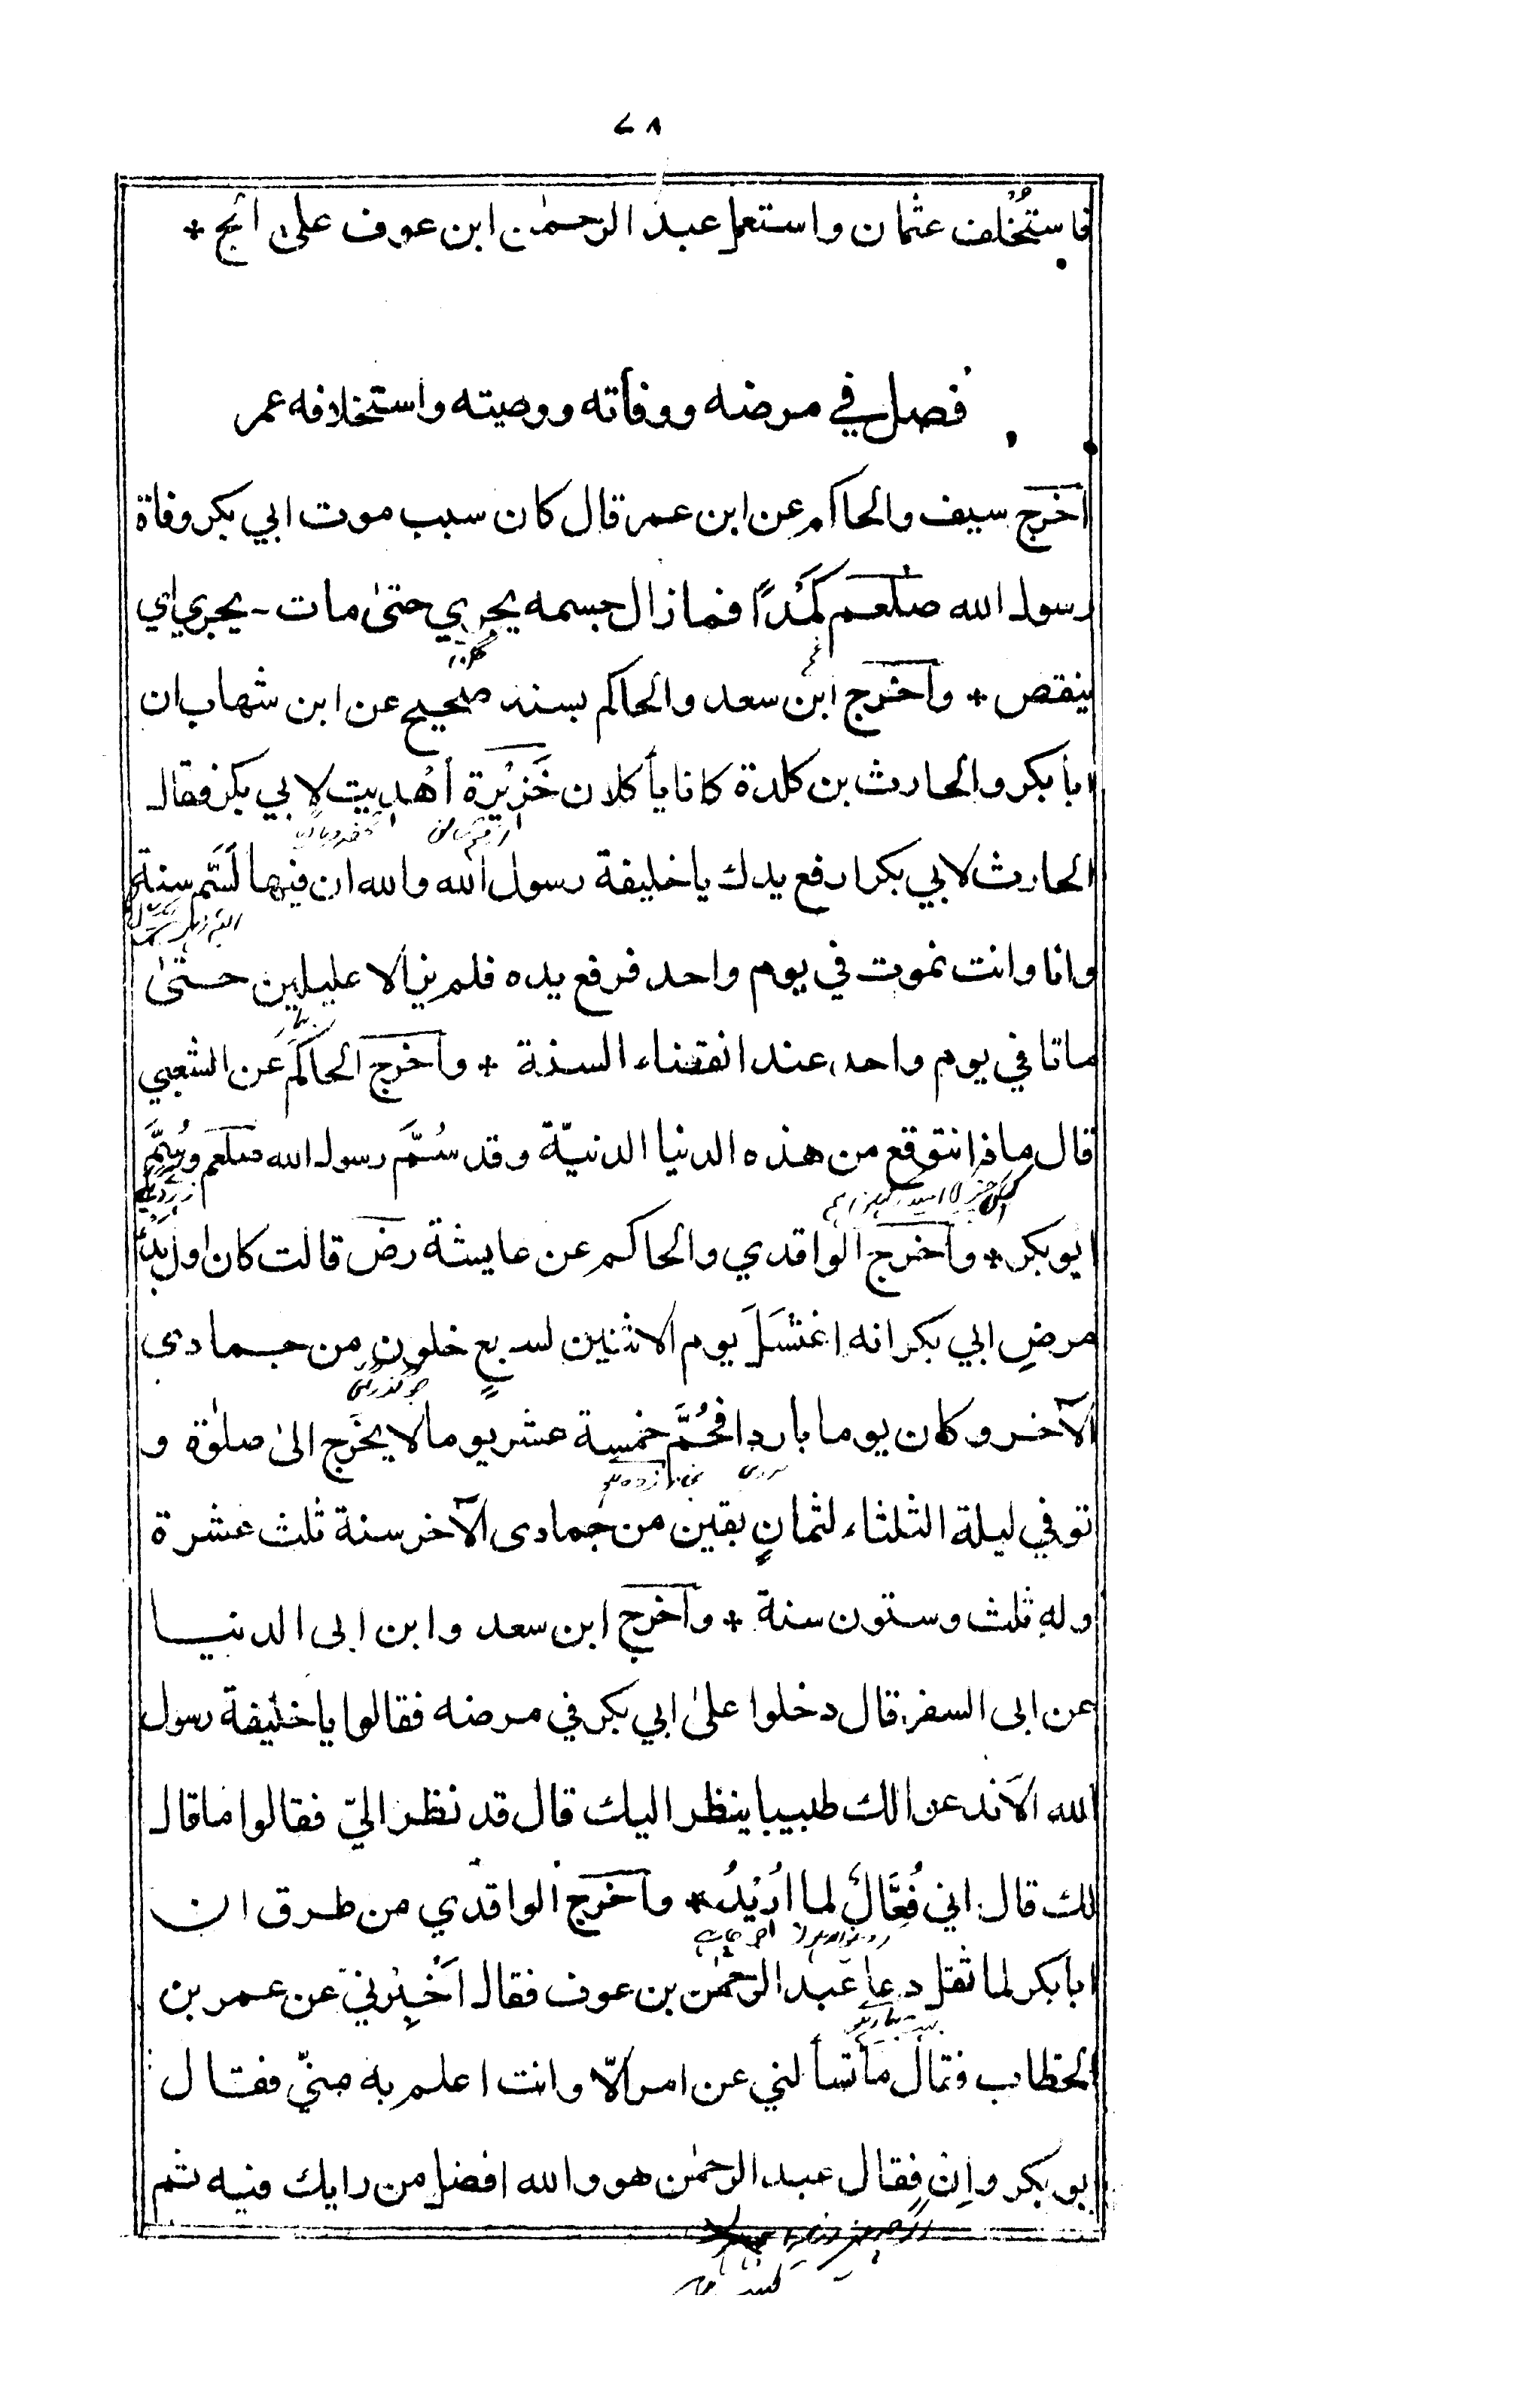 ٧٨
فاستُخلف عثمان واستعمل عبد الرحمٰن ابن عوف على الحج *
فصل في مرضه ووفاته ووصيته واستخلافه عمر
أخرج سيف والحاكم عن ابن عمر قال كان سبب موت ابي بكر وفاة
رسول الله صلعم كَمَدًا فما زال جسمه يجري حتىٰ مات - يجري اي
ينقص * وأخرج ابن سعد والحاكم بسند صحيح عن ابن شهاب ان
ابا بكر والحارث بن كلدة كانا يأكلان خَزِيْرة أهْديت لابي بكر فقال
الحارث لابي بكر ارفع يدك يا خليفة رسول الله والله ان فيها لَسَّم سنة
وانا وانت نموت في يوم واحد فرفع يده فلم يزالا عليلين حتىٰ
ماتا في يوم واحد عند انقضاء السنة * وأخرج الحاكم عن الشعبي
قال ماذا نتوقع من هذه الدنيا الدنيّة وقد سُمَّ رسول الله صلعم وسُمَّ
ابو بكر * وأخرج الواقدي والحاكم عن عايشة رض قالت كان اول بَدْء
مرضِ ابي بكر انه اغتسَلَ يوم الاثنين لسبعٍ خلون من جمادى
الآخر وكان يوما باردا فحُمَّ خمسة عشر يوما لا يخرج الىٰ صلوٰة و
توفي ليلة الثلثاء لثمانٍ بقين من جمادى الآخر سنة ثلث عشرة
وله ثلث وستون سنة * وأخرج ابن سعد وابن ابى الدنيا
عن ابى السفر قال دخلوا علىٰ ابي بكر في مرضه فقالوا يا خليفة رسول
الله الآ ندعو الك طبيبا ينظر اليك قال قد نظر اليّ فقالوا ما قال
لك قال اني فُعَّالٌ لما اُرِيْدُ * وأخرج الواقدي من طرق ان
ابا بكر لما ثقل دعا عبد الرحمٰن بن عوف فقال اَخْبِرْني عن عمر بن
الخطاب فقال ما تسألني عن امر الّا وانت اعلم به منيّ فقال
ابو بكر واِن فقال عبد الرحمٰن هو والله افضل من رايك فيه ثم